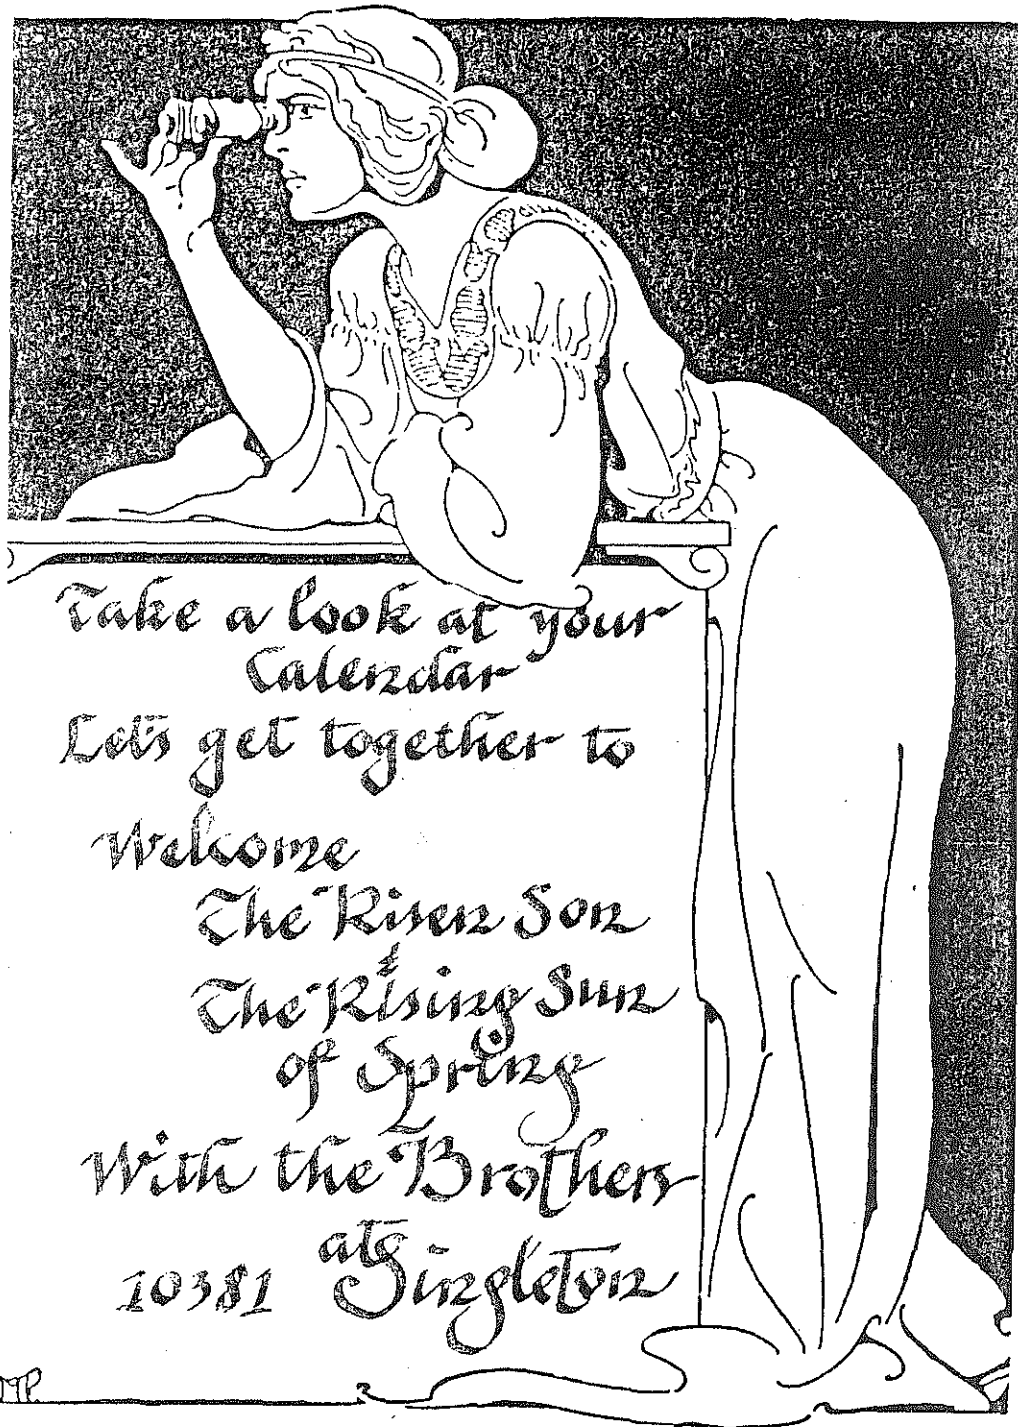 Take a look at your
Calendar
Let's get together to
Welcome
The Risen Son
&
The Rising Sun
of Spring
With the Brothers
at
10381 Singleton